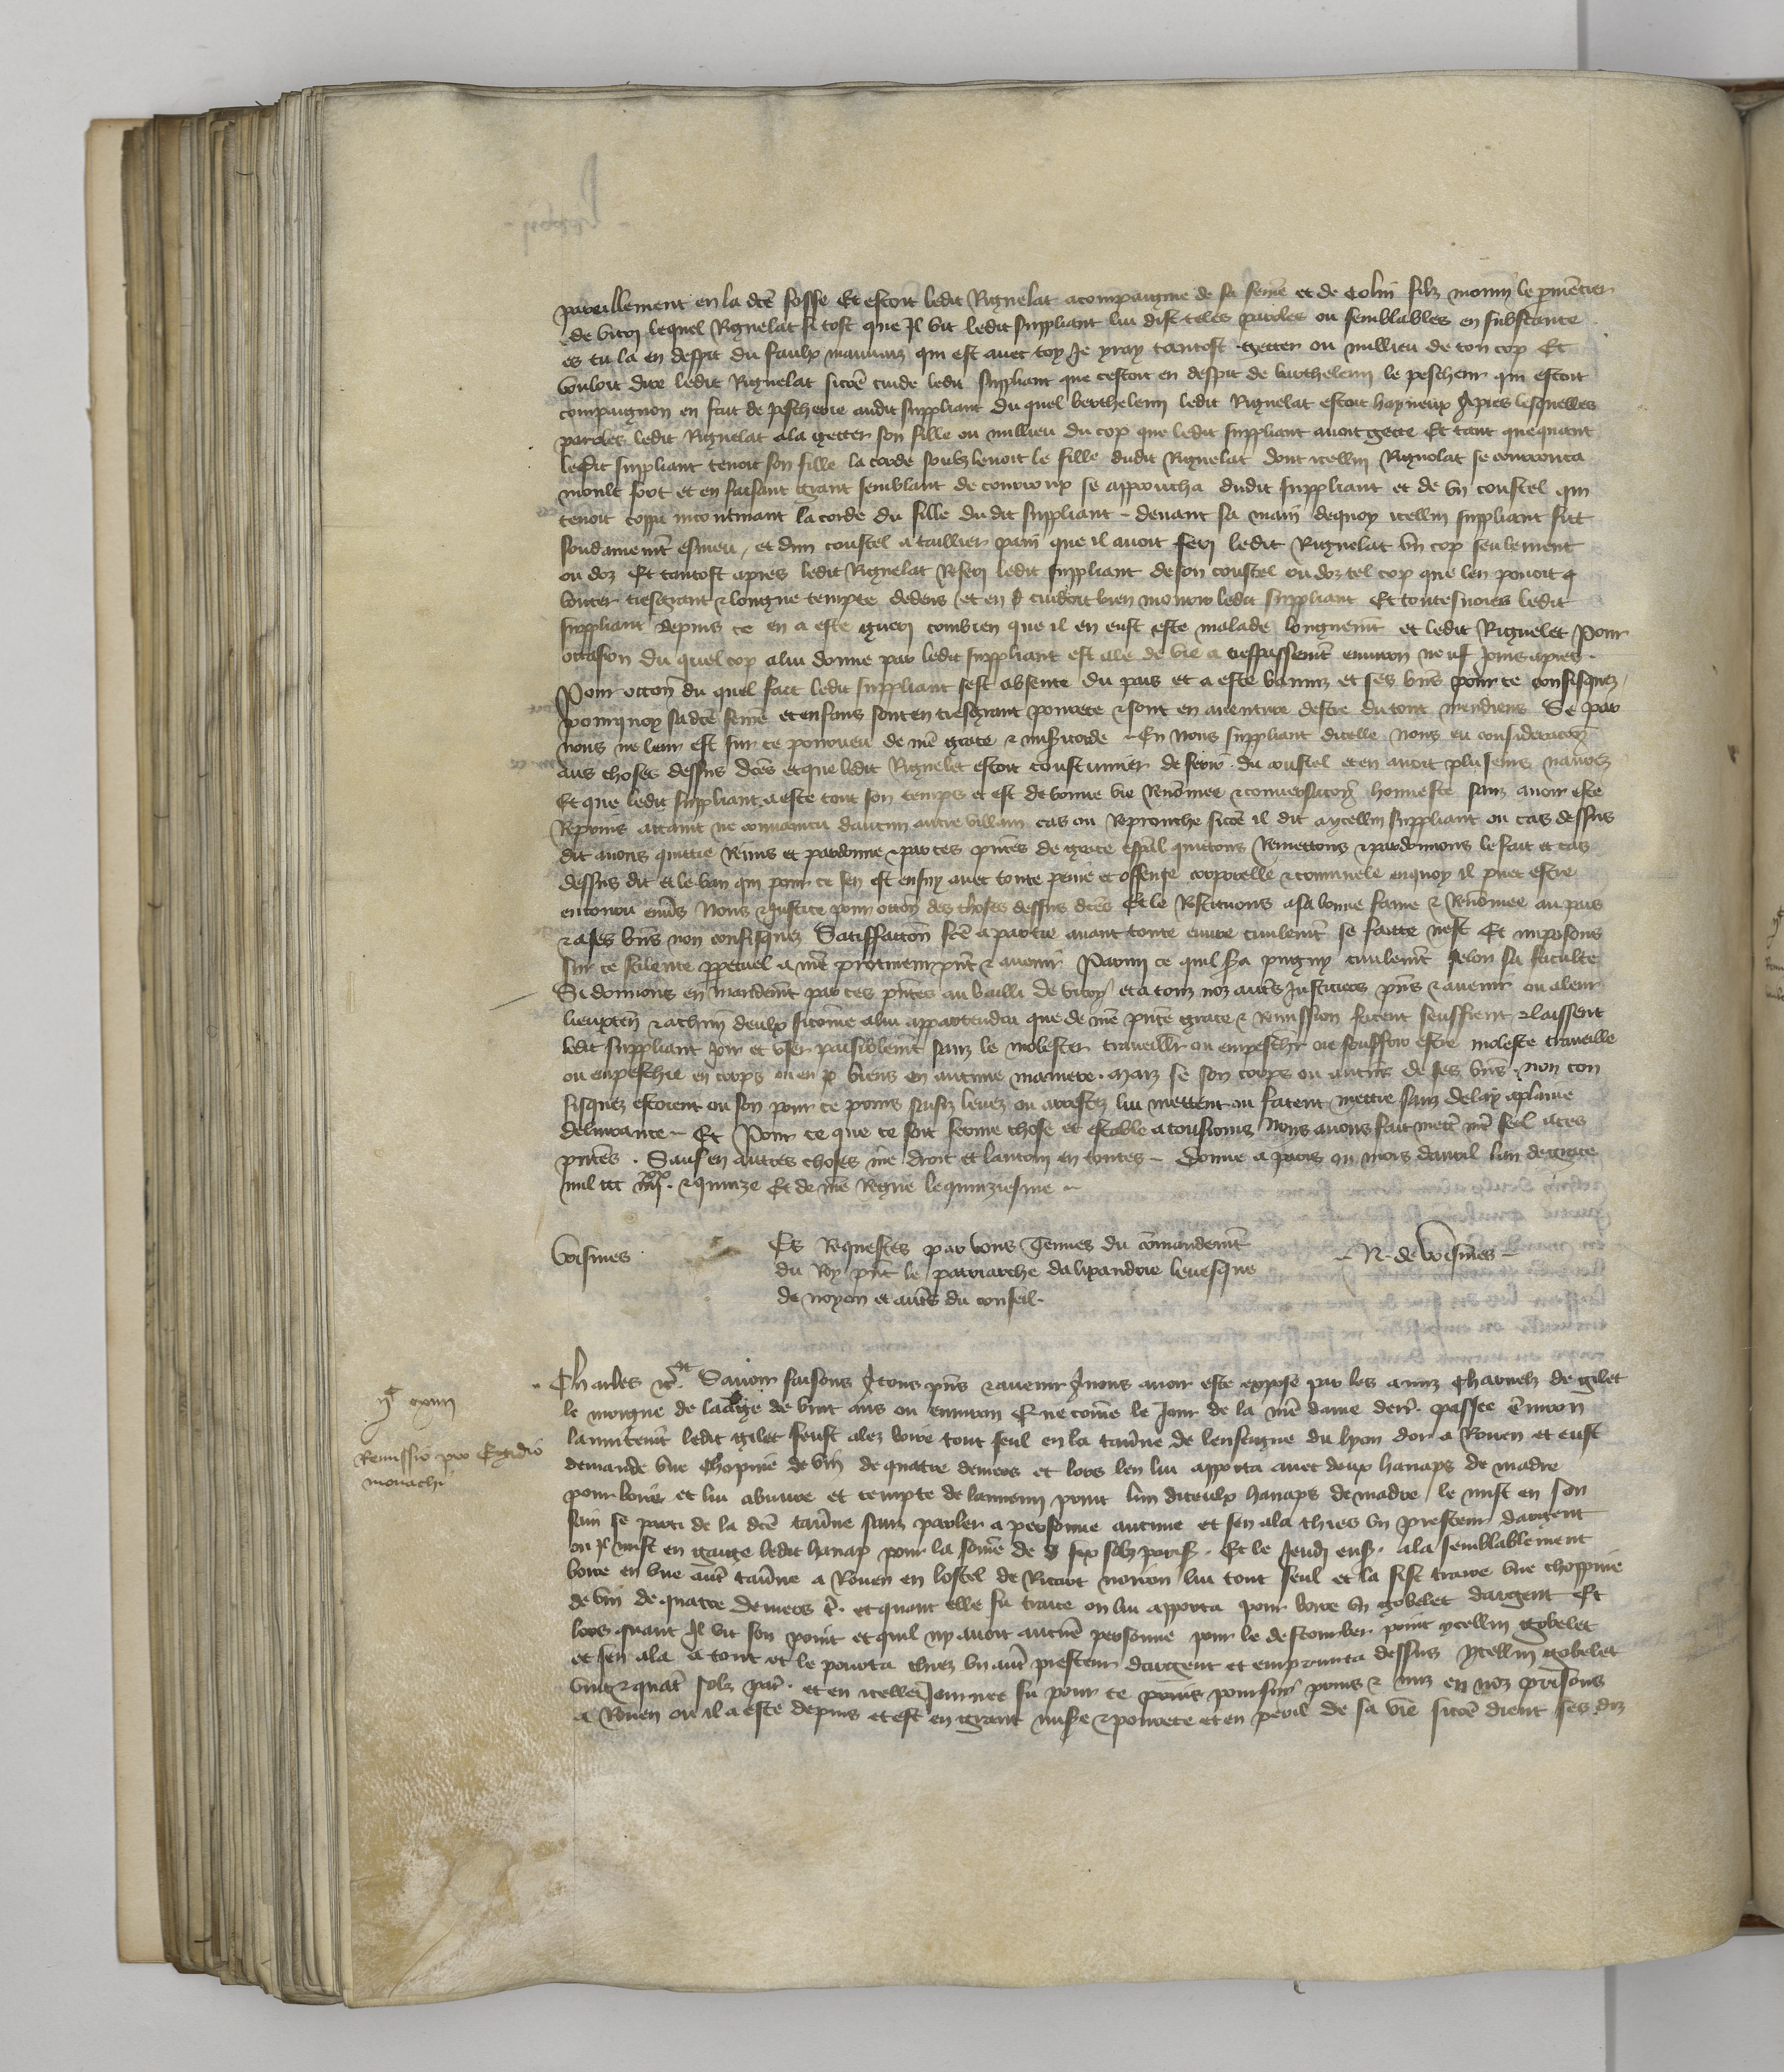 pareillement en la dcē fosse Et estoit ledit Riguelat acompaignie de sa feme et de Colin filz monin le pmētier
de vitry lequel Riguelat si tost que Il vit ledit suppliant lui dist teles paroles ou semblables en substance
es tu la en despit du faulx mauuaiz qui est auec toy Je yray tantost getter ou millieu de ton cop Et
vouloit dire ledit Riguelat sicōe cuide ledit suppliant que cestoit en despit de berthelemi le pescheur qui estoit
compaignon en fait de pescherie audit suppliant du quel berthelemi ledit Riguelat estoit hayneux Apres lesquelles
paroles ledit Riguelat ala getter son fille ou millieu du cop que ledit suppliant auoit gette Et tant que quant
ledit suppliant tenoit son fille la corde soubzlenoit le fille dudit Riguelat dont icellui Riguelat se courrouca
moult fort et en faisant grant semblant de courroux se approucha dudit suppliant et de vn coustel qui
tenoit coppa incontinant la corde du fille du dit suppliant deuant sa main dequoy icellui suppliant fut
soudainemt esmeu, et dun coustel a taillier pain que il auoit feri ledit Riguelat vn cop seulement
ou doz Et tantost apres ledit Riguelat Referi ledit suppliant de son coustel ou doz tel cop que len pouoit
bouter tresgrant & longue tempte dedens et en cuidoit bien morir ledit suppliant Et toutesuoies ledit
suppliant depuis ce en a este gueri combien que il en eust este malade longuemt et ledit Riguelet Pour
occasion du quel cop alui donne par ledit suppliant est ale de vie a trespassemt enuiron neuf Jours apres.
Pour occon du quel fait ledit suppliant sest absente du pais et a este banniz et ses bns pour ce confisquez,
pourquoy sa dcē feme et enfans sont en tresgrant pourete & sont en auenture destre du tout mendiens Se par
nous ne leur est sur ce pourueu de nrē grace & misicorde En nous suppliant dicelle Nous eu consideracon
aus choses dessus dcēs et que ledit Riguelet estoit coustumier de ferir du coustel et en auoit plusieurs naurez
Et que ledit suppliant a este tout son temps et est de bonne vie Renōmee & conuersacon honneste sanz auoir este
Repris attaint ne conuaincu daucun autre villain cas ou Reprouche sicōe il dit aycellui suppliant ou cas dessus
dit auons quittie Remis et pardonne & par ces pntes de grace espāl quittons Remettons & pardonnons le fait et cas
dessus dit et le ban qui pour ce sen est ensuy auec toute peine et offense corporelle & criminele enquoy il puet estre
encouru enuers Nous & Justice pour occon des choses dessus dcēs Et le Restituons a sa bonne fame & Renōmee au pais
& a ses bns non confisquez Satisffaccon fcē a partie auant toute euure ciuilemt se faicte nest Et imposons
sur ce silence ppetuel a nrē procureur pnt & auenir Parmi ce quil sa pugny ciuilemt selon sa faculte
Si donnons en mandemt par ces pntes au bailli de vitry et a touz noz autres Justiciers pns & auenir ou aleur
lieuxten & achun deulx sicome alui appartendra que de nrē pnte grace & Remission facent seuffrent & laissent
ledit suppliant Joir et vser paisiblemt sanz le molester traueillr ou empeschr ou souffrir estre moleste traueille
ou empeschie en corps ou en biens en aucune maniere. Maiz se son corps ou aucuns de ses bns non con
fisquez estoient ou son pour ce prins saisiz leuez ou arrestez lui mettent ou facent mettre sanz delay aplaine
deliurance Et Pour ce que ce soit ferme chose et estable a tousiours Nous auons fait mett nrē seel aces
pntes. Sauf en autres choses nrē droit et lautrui en toutes Donne a paris ou mois dauril lan de grace
mil ccc iiijxx & quinze Et de nrē Regne le quinziesme
Voisines
Es Requestes par vous Tenues du cōmandemt
du Roy pnt le patriarche dalixandrie leuesque
de noyon et autres du conseil.
N. de voisines
ijc xxiiij
Remissio pro Egidio
monachi
Charles &c. Sauoir faisons A tous pns & auenir A nous auoir este expose par les amiz Charnelz de gilet
le moigne de laage de vint ans ou enuiron Que come le Jour de la nrē dame derr. passee enuiron
lanuitemt ledit gilet feust alez boire tout seul en la tauerne de lenseigne du lyon dor a Rouen et eust
demande vne Chopine de vin de quatre deniers et lors len lui apporta auec deux hanaps de madre
pour boire et lui abuure et tempte de lannemi print lun diceulx hanaps de madre le mist en son
sain se parti de la dcē tauerne sanz parler a personne aucune et sen ala chies vn presteur dargent
ou Il mist en gaige ledit hanap pour la some de six solz paris. Et le Jeudi ens. ala semblablement
boire en vne autre tauerne a Rouen en lostel de Ricart noiron lui tout seul et la fist traire vne choppine
de vin de quatre deniers t. et quant elle fu traite on lui apporta pour boire vn gobelet dargent Et
lors quant Il vit son point et quil ny auoit aucune personne pour le destourber print ycellui gobelet
et sen ala a tout et le pourta chiez vn autre presteur dargent et emprunta dessus ycellui gobelet
vint & quatre solz par. et en icelle Journee fu pour ce prins poursuy prins & mis en noz prisons
a Rouen ou il a este depuis et est en grant misere & pourete et en peril de sa vie sicōe dient ses diz